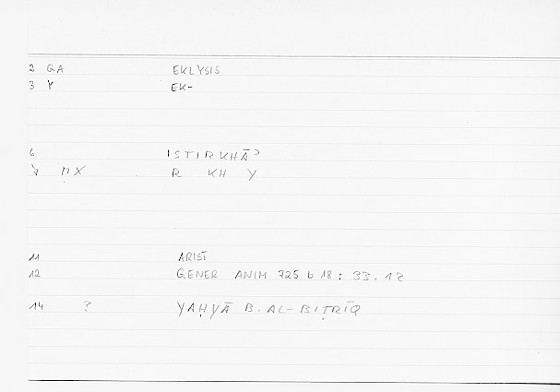 2 GA EKLYSIS
3 Y EK-
6 ISTIRKHĀʾ
R KH Y
11 ARIST
12 GENER ANIM 725 b 18 : 33.12
14 ? YAḤYĀ B. AL-BIṬRĪQ